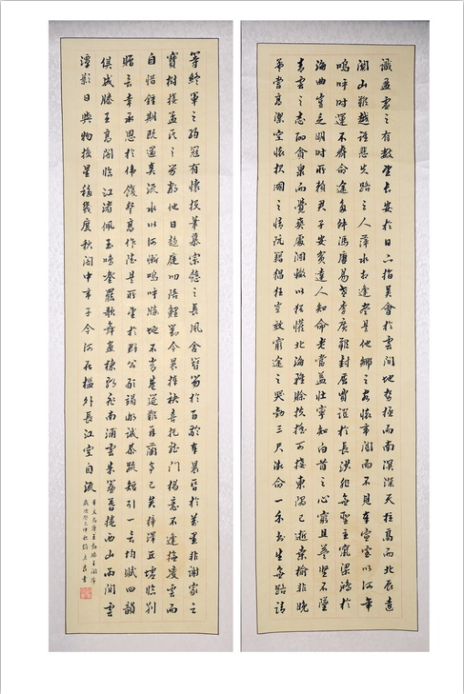 識盈虛之有數望長安於日下指吳會於雲間地勢極而南溟深天柱高而北辰遠
關山難越誰悲失路之人萍水相逢盡是他鄉之客懷帝閽而不見奉宣室以何年
嗚呼時運不齊命途多舛馮唐易老李廣難封屈賈誼於長沙非無聖主竄梁鴻於
海曲豈乏明時所賴君子安貧達人知命老當益壯寧知白首之心窮且益堅不墜
青雲之志酌貪泉而覺爽處涸轍以猶懽北海雖賒扶搖可接東隅已逝桑榆非晚
孟嘗高潔空懷報國之情阮籍猖狂豈效窮途之哭勃三尺微命一介書生無路請
等終軍之弱冠有懷投筆慕宗愨之長風舍簪笏於百齡奉晨昏於萬里非謝家之
寶樹接孟氏之芳鄰他日趨庭叨陪鯉對今晨捧袂喜托龍門楊意不逢撫凌雲而
自惜鍾期既遇奏流水以何慚嗚呼勝地不常盛筵難再蘭亭已矣梓澤丘墟臨別
贈言幸承恩於偉餞登高作賦是所望於群公敢竭鄙誠恭疏短引一言均賦四韻
俱成滕王高閣臨江渚佩玉鳴鸞罷歌舞畫棟朝飛南浦雲朱簾暮捲西山雨閒雲
潭影日物換星移幾度秋閣中帝子今何在檻外長江空自流